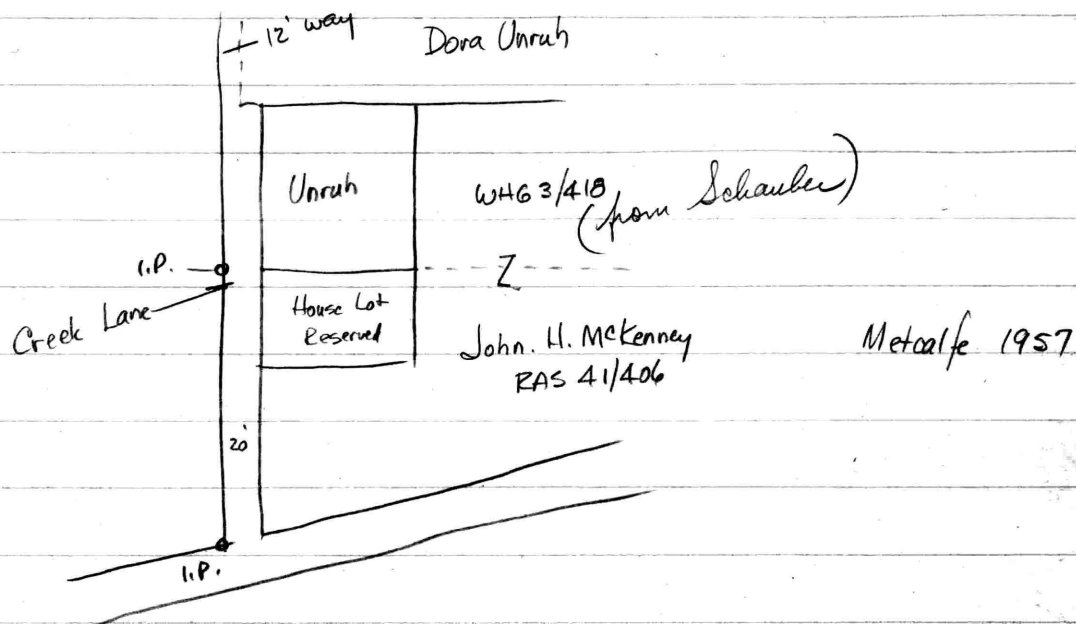 12' way
Dora Unruh
Unruh
WHG 3/418
(from Schauber)
I.P.
Z
Creek Lane
House Lot
Reserved
John. H. McKenney
RAS 41/406
Metcalfe 1957
20'
I.P.